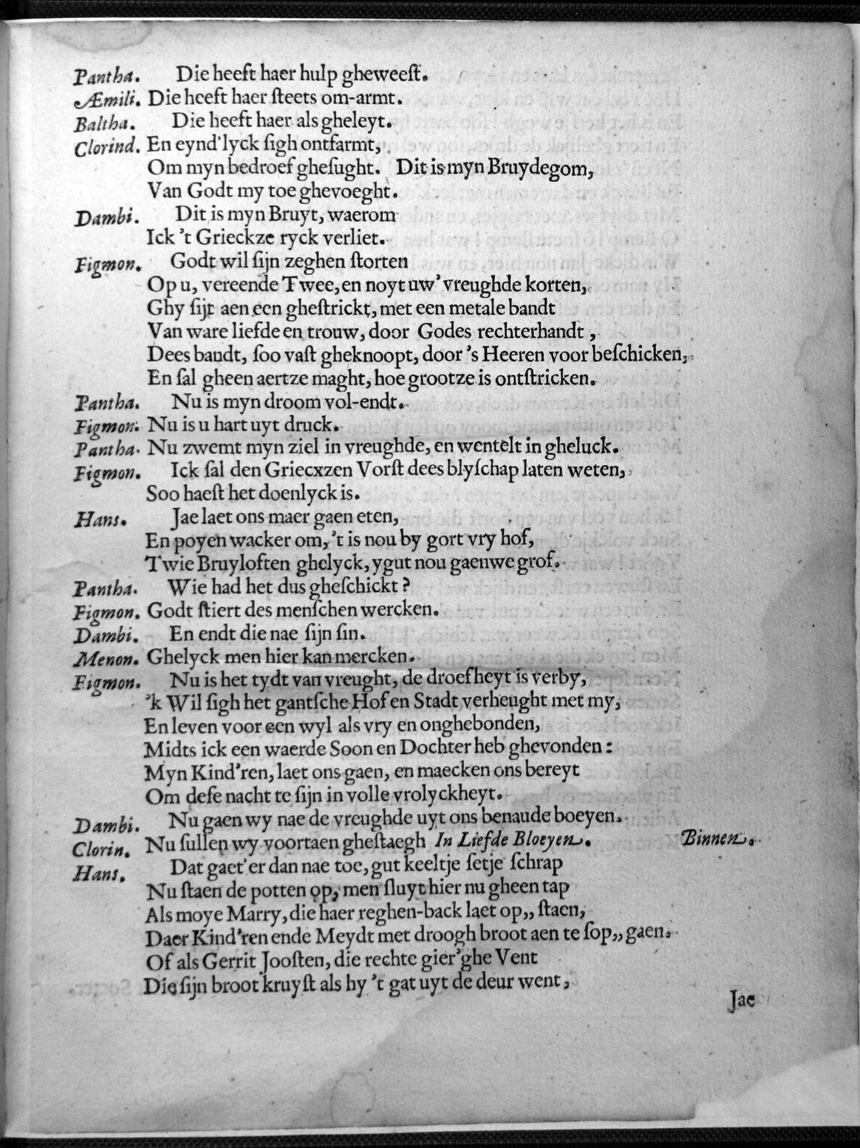 Pantha. Die heeft haer hulp gheweeſt.
Æmili. Die heeft haer ſteets om-armt.
Baltha. Die heeft haer als gheleyt.
Clorind. En eynd'lyck ſigh ontfarmt,
Om myn bedroef gheſught. Dit is myn Bruydegom,
Van Godt my toe ghevoeght.
Dambi. Dit is myn Bruyt, waerom
Ick 't Grieckze ryck verliet.
Figmon. Godt wil ſijn zeghen ſtorten
Op u, vereende Twee, en noyt uw' vreughde korten,
Ghy ſijt aen een gheſtrickt, met een metale bandt
Van ware liefde en trouw, door Godes rechterhandt,
Dees bandt, ſoo vaſt gheknoopt, door 's Heeren voor beſchicken,
En ſal gheen aertze maght, hoe grootze is ontſtricken.
Pantha. Nu is myn droom vol-endt.
Figmon. Nu is u hart uyt druck.
Pantha. Nu zwemt myn ziel in vreughde, en wentelt in gheluck.
Figmon. Ick ſal den Griecxzen Vorſt dees blyſchap laten weten,
Soo haeſt het doenlyck is.
Hans. Jae laet ons maer gaen eten,
En poyen wacker om, 't is nou by gort vry hof,
Twie Bruyloften ghelyck, ygut nou gaenwe grof.
Pantha. Wie had het dus gheſchickt?
Figmon. Godt ſtiert des menſchen wercken.
Dambi. En endt die nae ſijn ſin.
Menon. Ghelyck men hier kan mercken.
Figmon. Nu is het tydt van vreught, de droefheyt is verby,
'k Wil ſigh het gantſche Hof en Stadt verheught met my,
En leven voor een wyl als vry en onghebonden,
Midts ick een waerde Soon en Dochter heb ghevonden:
Myn Kind'ren, laet ons gaen, en maecken ons bereyt
Om deſe nacht te ſijn in volle vrolyckheyt.
Dambi. Nu gaen wy nae de vreughde uyt ons benaude boeyen.
Clorin. Nu ſullen wy voortaen gheſtaegh In Liefde Bloeyen. Binnen.
Hans. Dat gaet'er dan nae toe, gut keeltje ſetje ſchrap
Nu ſtaen de potten op, men ſluyt hier nu gheen tap
Als moye Marry, die haer reghen-back laet op,, ſtaen,
Daer Kind'ren ende Meydt met droogh broot aen te ſop,, gaen.
Of als Gerrit Jooſten, die rechte gier'ghe Vent
Die ſijn broot kruyſt als hy 't gat uyt de deur went,
Jae